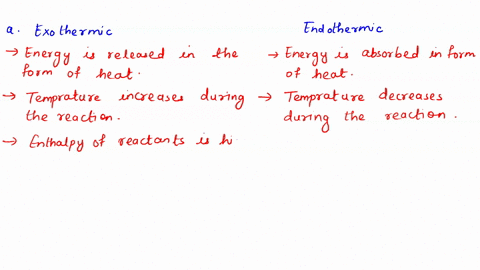 a. Exothermic
→ Energy is released in the
form of heat.
→ Temprature increases during
the reaction.
→ Enthalpy of reactants is hi
Endothermic
→ Energy is absorbed in form
of heat.
→ Temprature decreases
during the reaction.